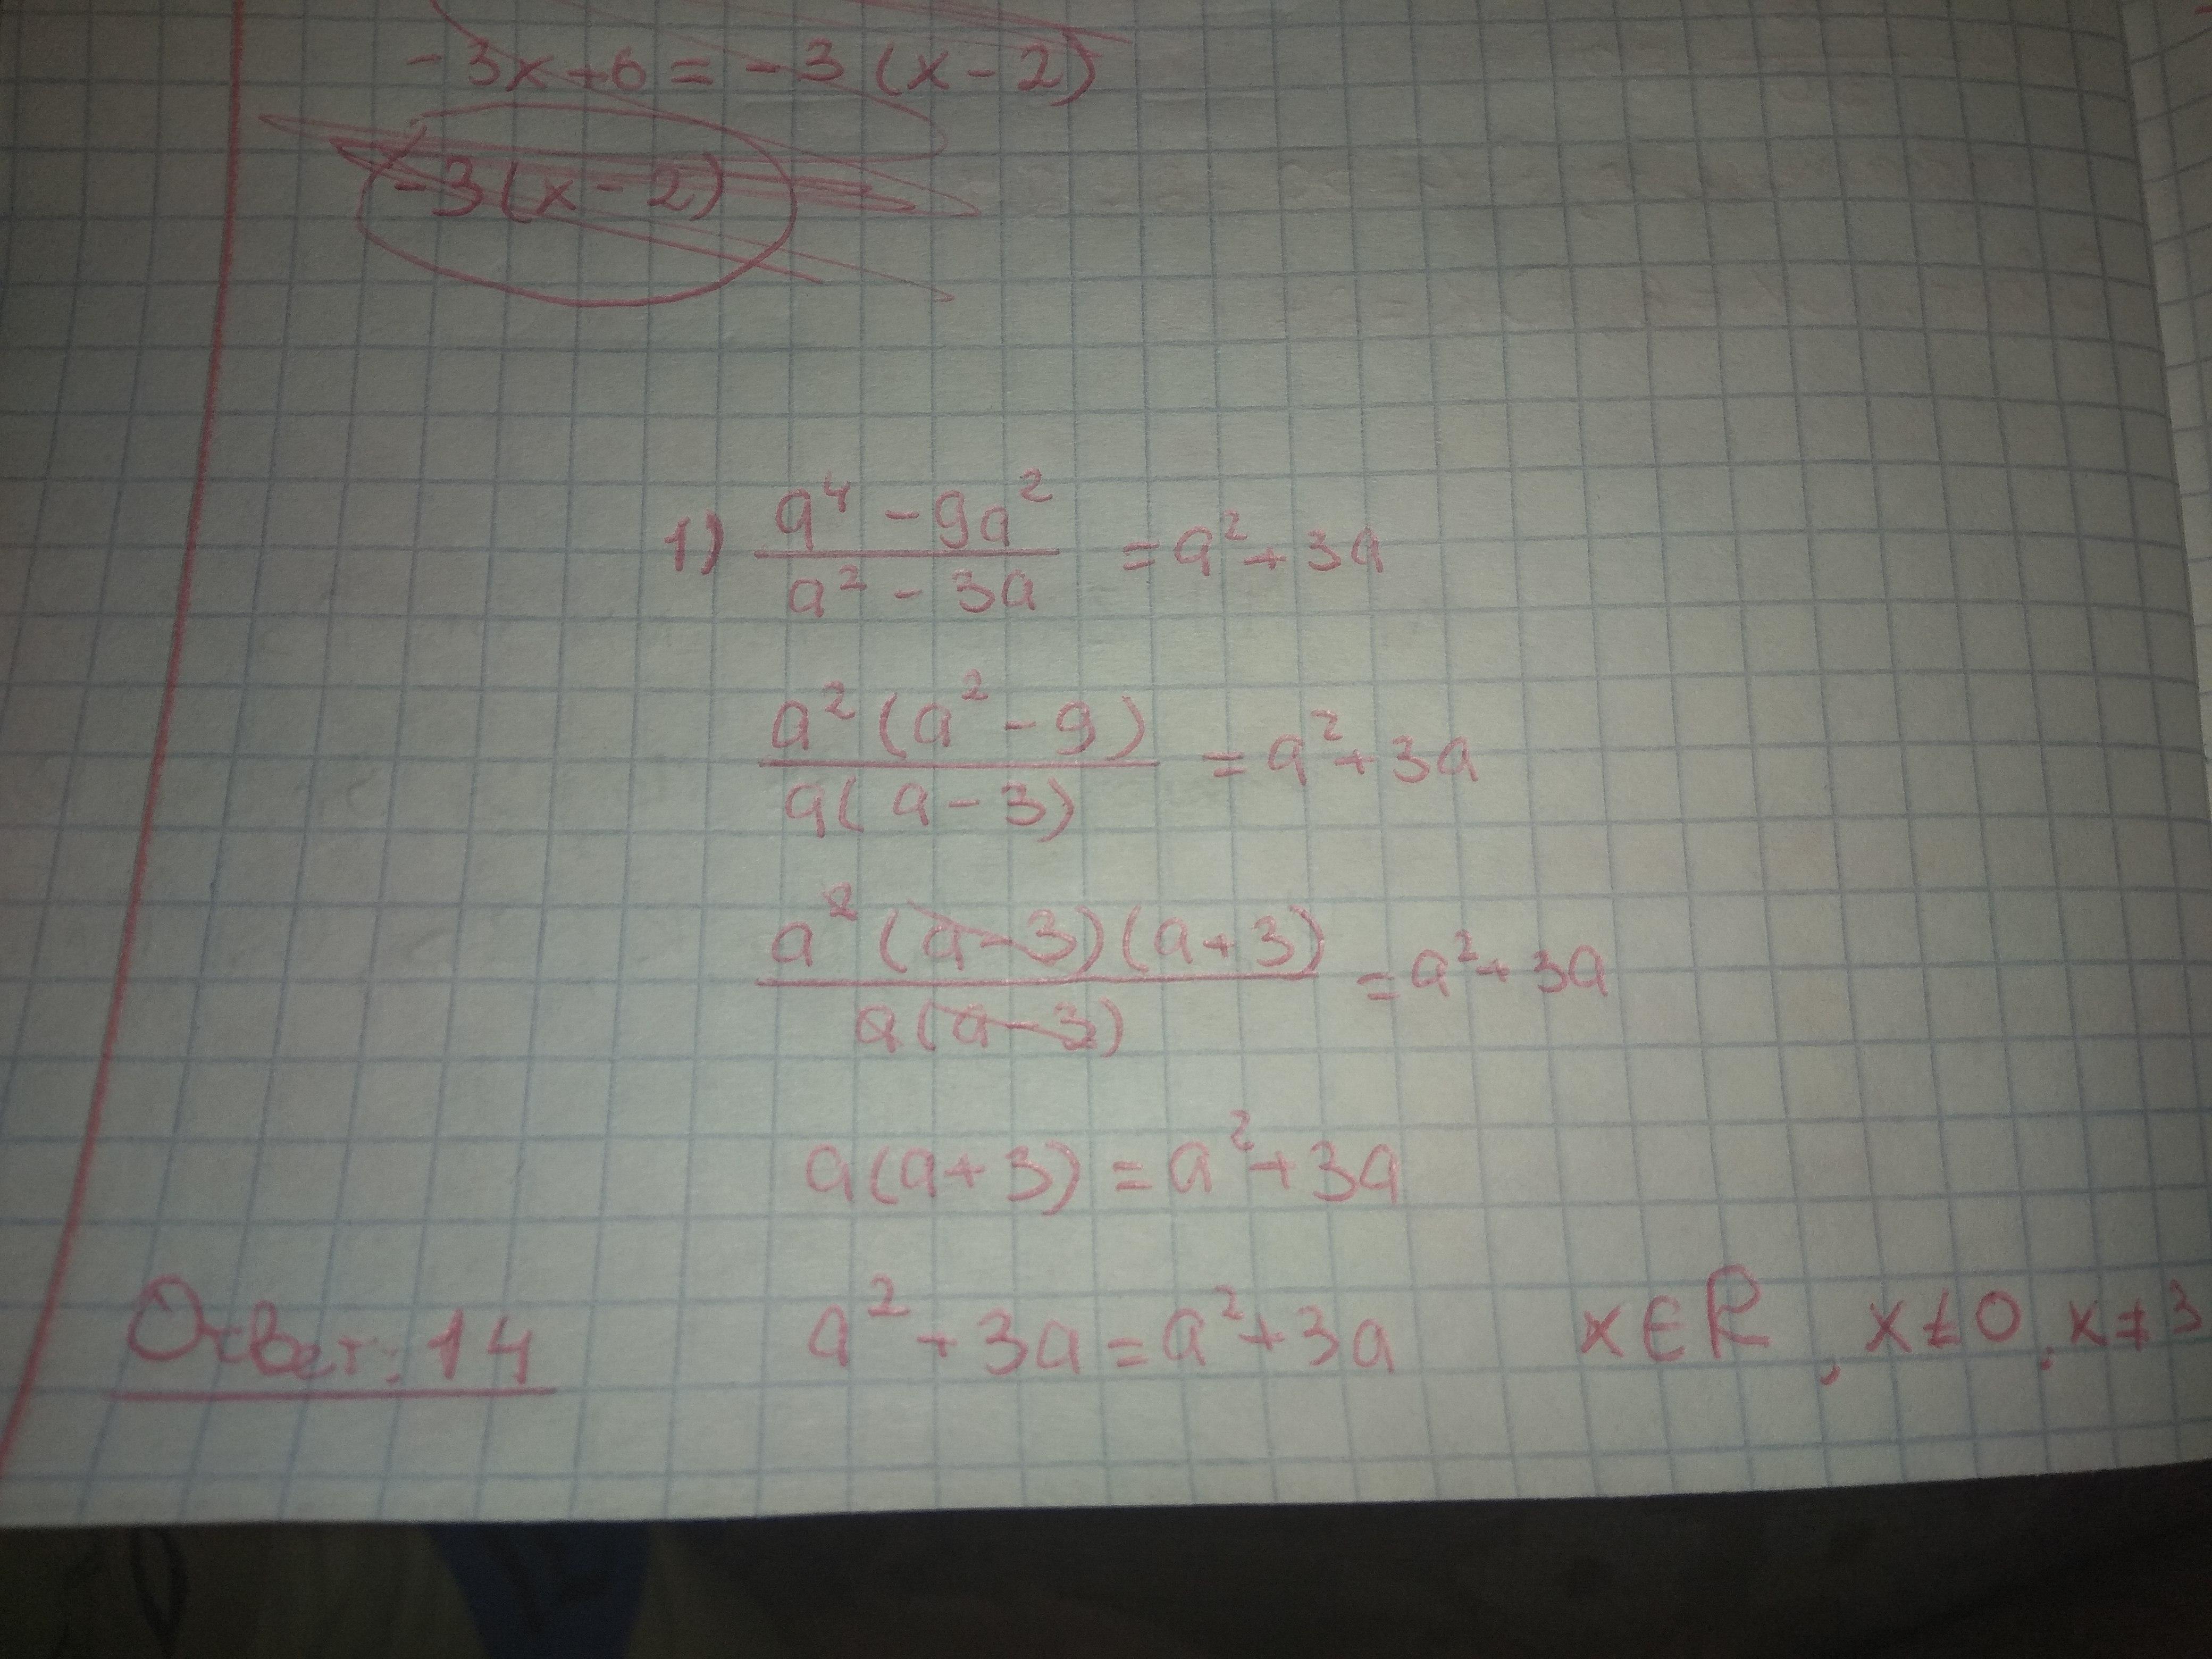 -3x+6=-3(x-2)
-3(x-2)
1) (a⁴-9a²)/(a²-3a) = a²+3a
(a²(a²-9))/(a(a-3)) = a²+3a
(a²(a-3)(a+3))/(a(a-3)) = a²+3a
a(a+3)=a²+3a
Ответ: 14 a²+3a=a²+3a x∈R, x≠0, x≠3